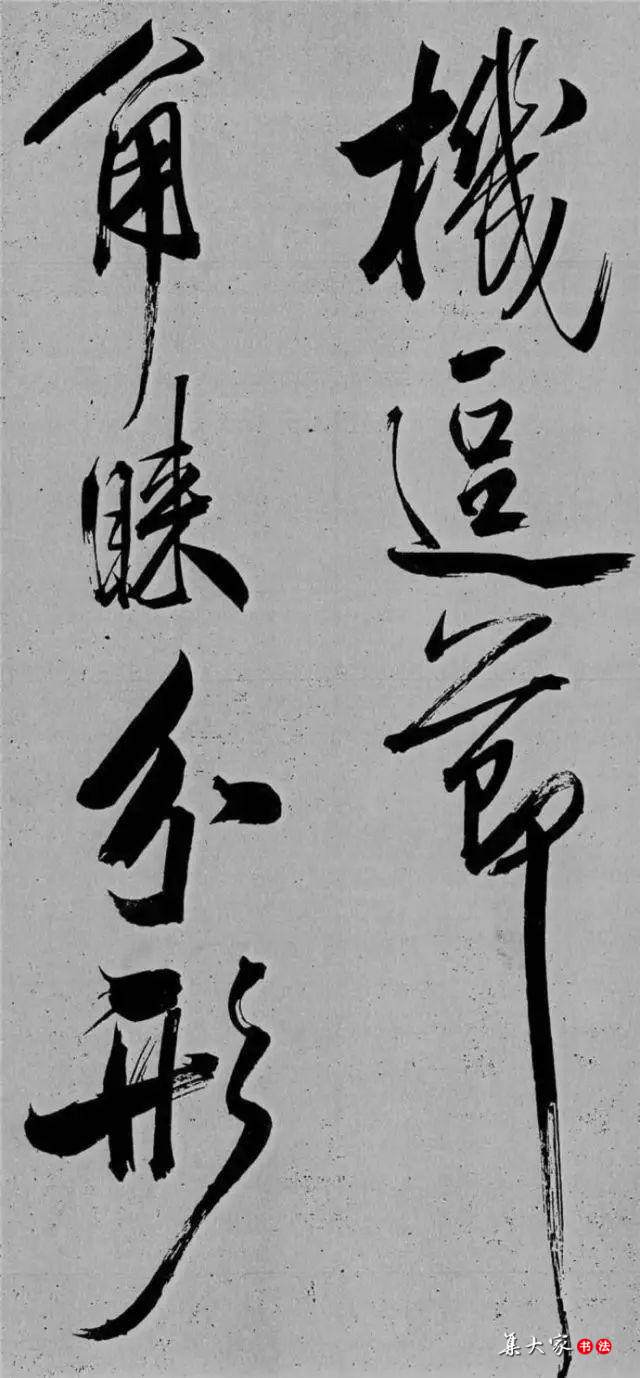 機逗節
角睞分形
集大家 书法